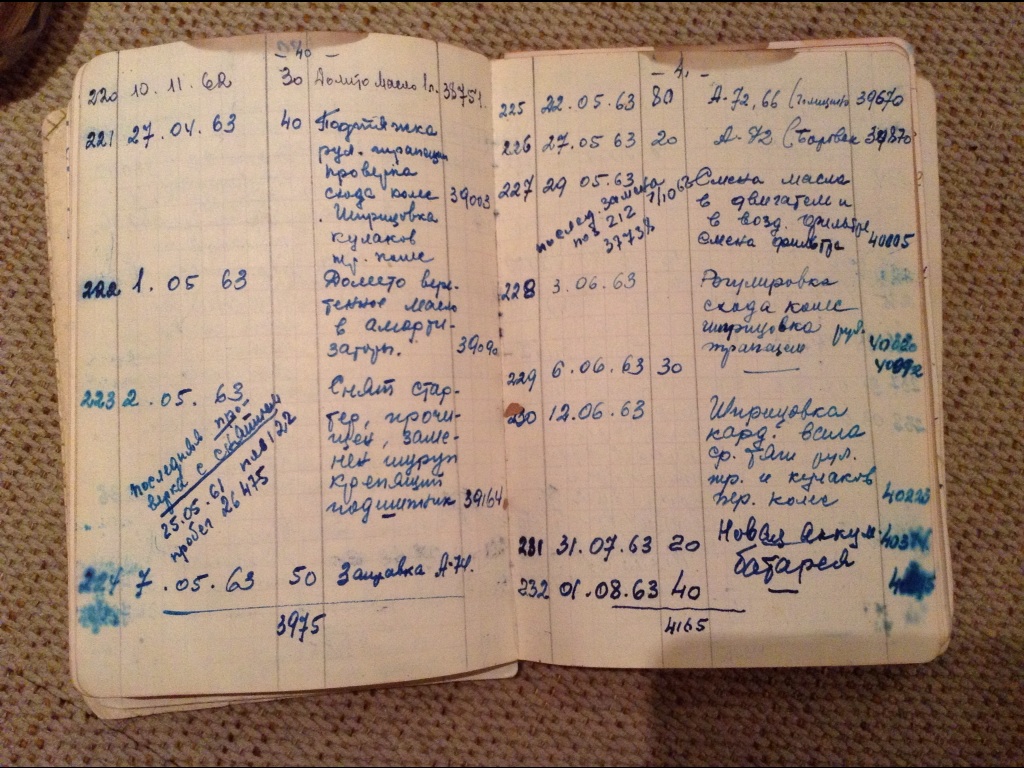 - 40 -
220 10.11.62 30 Долито масло 1л. 38751.
221 27.04.63 40 Подтяжка
рул. трапеции
проверка
схода колес 39003
. Шприцовка
кулаков
пр. колес
222 1.05 63 Долито вере-
тенное масло
в аморти-
заторы. 39090
223 2.05.63 Снят стар-
тер, прочи-
щен, заме-
нен шуруп
крепящий
подшипник 39164
последняя про-
верка с снятием
25.05.61 поз 122
пробег 26475
224 7.05.63 50 Заправка А-74.
3975
- 41 -
225 22.05.63 80 А-72,66 39670
226 27.05 63 20 А-72
227 29 05.63 Смена масла
в двигателе и
в возд. фильтре
смена фильтра 40005
послед. замена
поз 212 7/10 62
37738
228 3.06.63 Регулировка
схода колес
шприцовка рул.
трапеции 40020
229 6.06.63 30 40092
230 12.06.63 Шприцовка
кард. вала
ср. тяги рул.
тр. и кулаков
пер. колес 40223
231 31.07.63 20 Новая аккум
батарея
232 01.08.63 40
4165